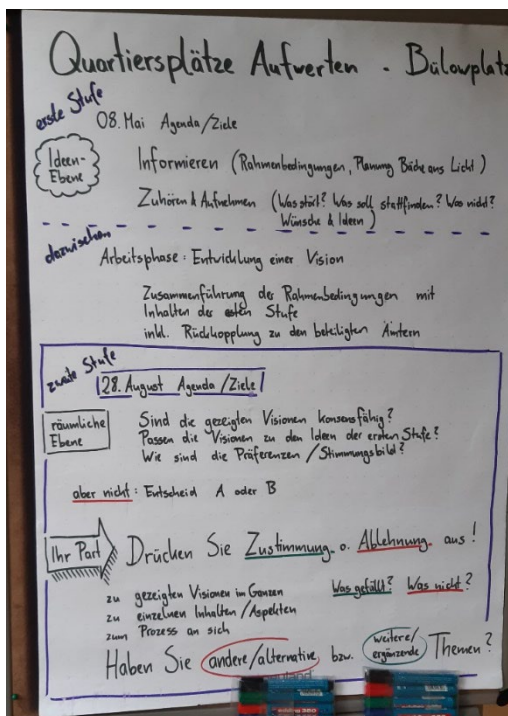 Quartiersplätze Aufwerten - Bülowplatz
erste Stufe
08. Mai Agenda/Ziele
Ideen-
Ebene
Informieren (Rahmenbedingungen, Planung Bäche ans Licht)
Zuhören & Aufnehmen (Was stört? Was soll stattfinden? Was nicht?
Wünsche & Ideen)
dazwischen
Arbeitsphase: Entwicklung einer Vision
Zusammenführung der Rahmenbedingungen mit
Inhalten der ersten Stufe
inkl. Rückkopplung zu den beteiligten Ämtern
zweite Stufe
28. August Agenda/Ziele
räumliche
Ebene
Sind die gezeigten Visionen konsensfähig?
Passen die Visionen zu den Ideen der ersten Stufe?
Wie sind die Präferenzen/Stimmungsbild?
aber nicht: Entscheid A oder B
Ihr Part
Drücken Sie Zustimmung o. Ablehnung aus!
zu gezeigten Visionen im Ganzen
zu einzelnen Inhalten/Aspekten
zum Prozess an sich
Was gefällt? Was nicht?
Haben Sie andere/alternative bzw. weitere/
ergänzende Themen?